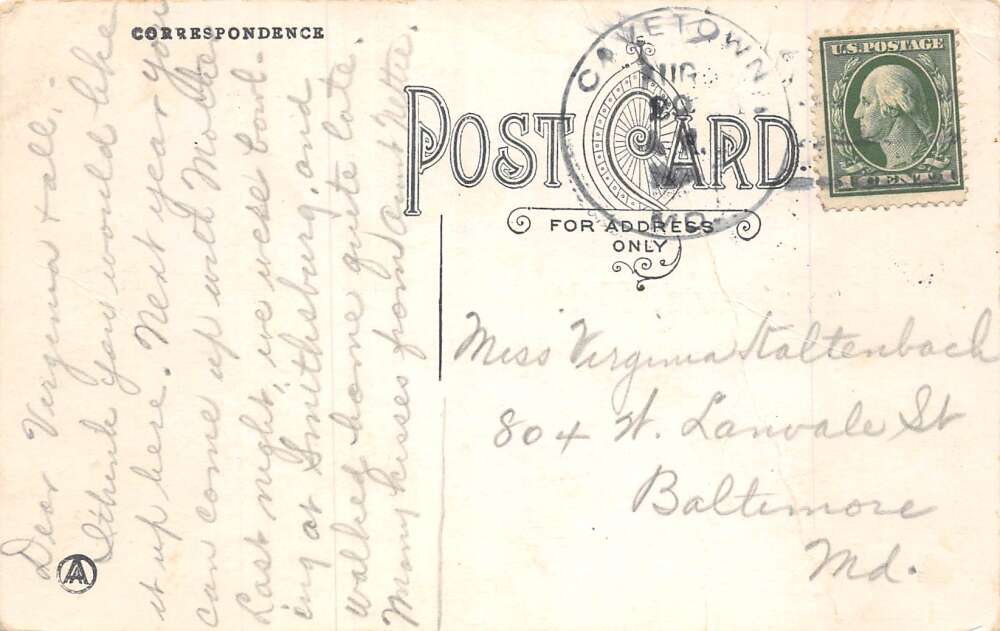 CORRESPONDENCE
POST CARD
FOR ADDRESS
ONLY
CAVETOWN
AUG
29
MD.
U.S. POSTAGE
1 CENT 1
Dear Virginia + all;-
I think you would like
it up here. Next year you
can come up with Mother
Last night, we were bowl-
ing at Smithsburg, and
walked home quite late.
Many kisses from Aunt Nettie.
Miss Virginia Kaltenbach
804 W. Lanvale St
Baltimore
Md.
AA